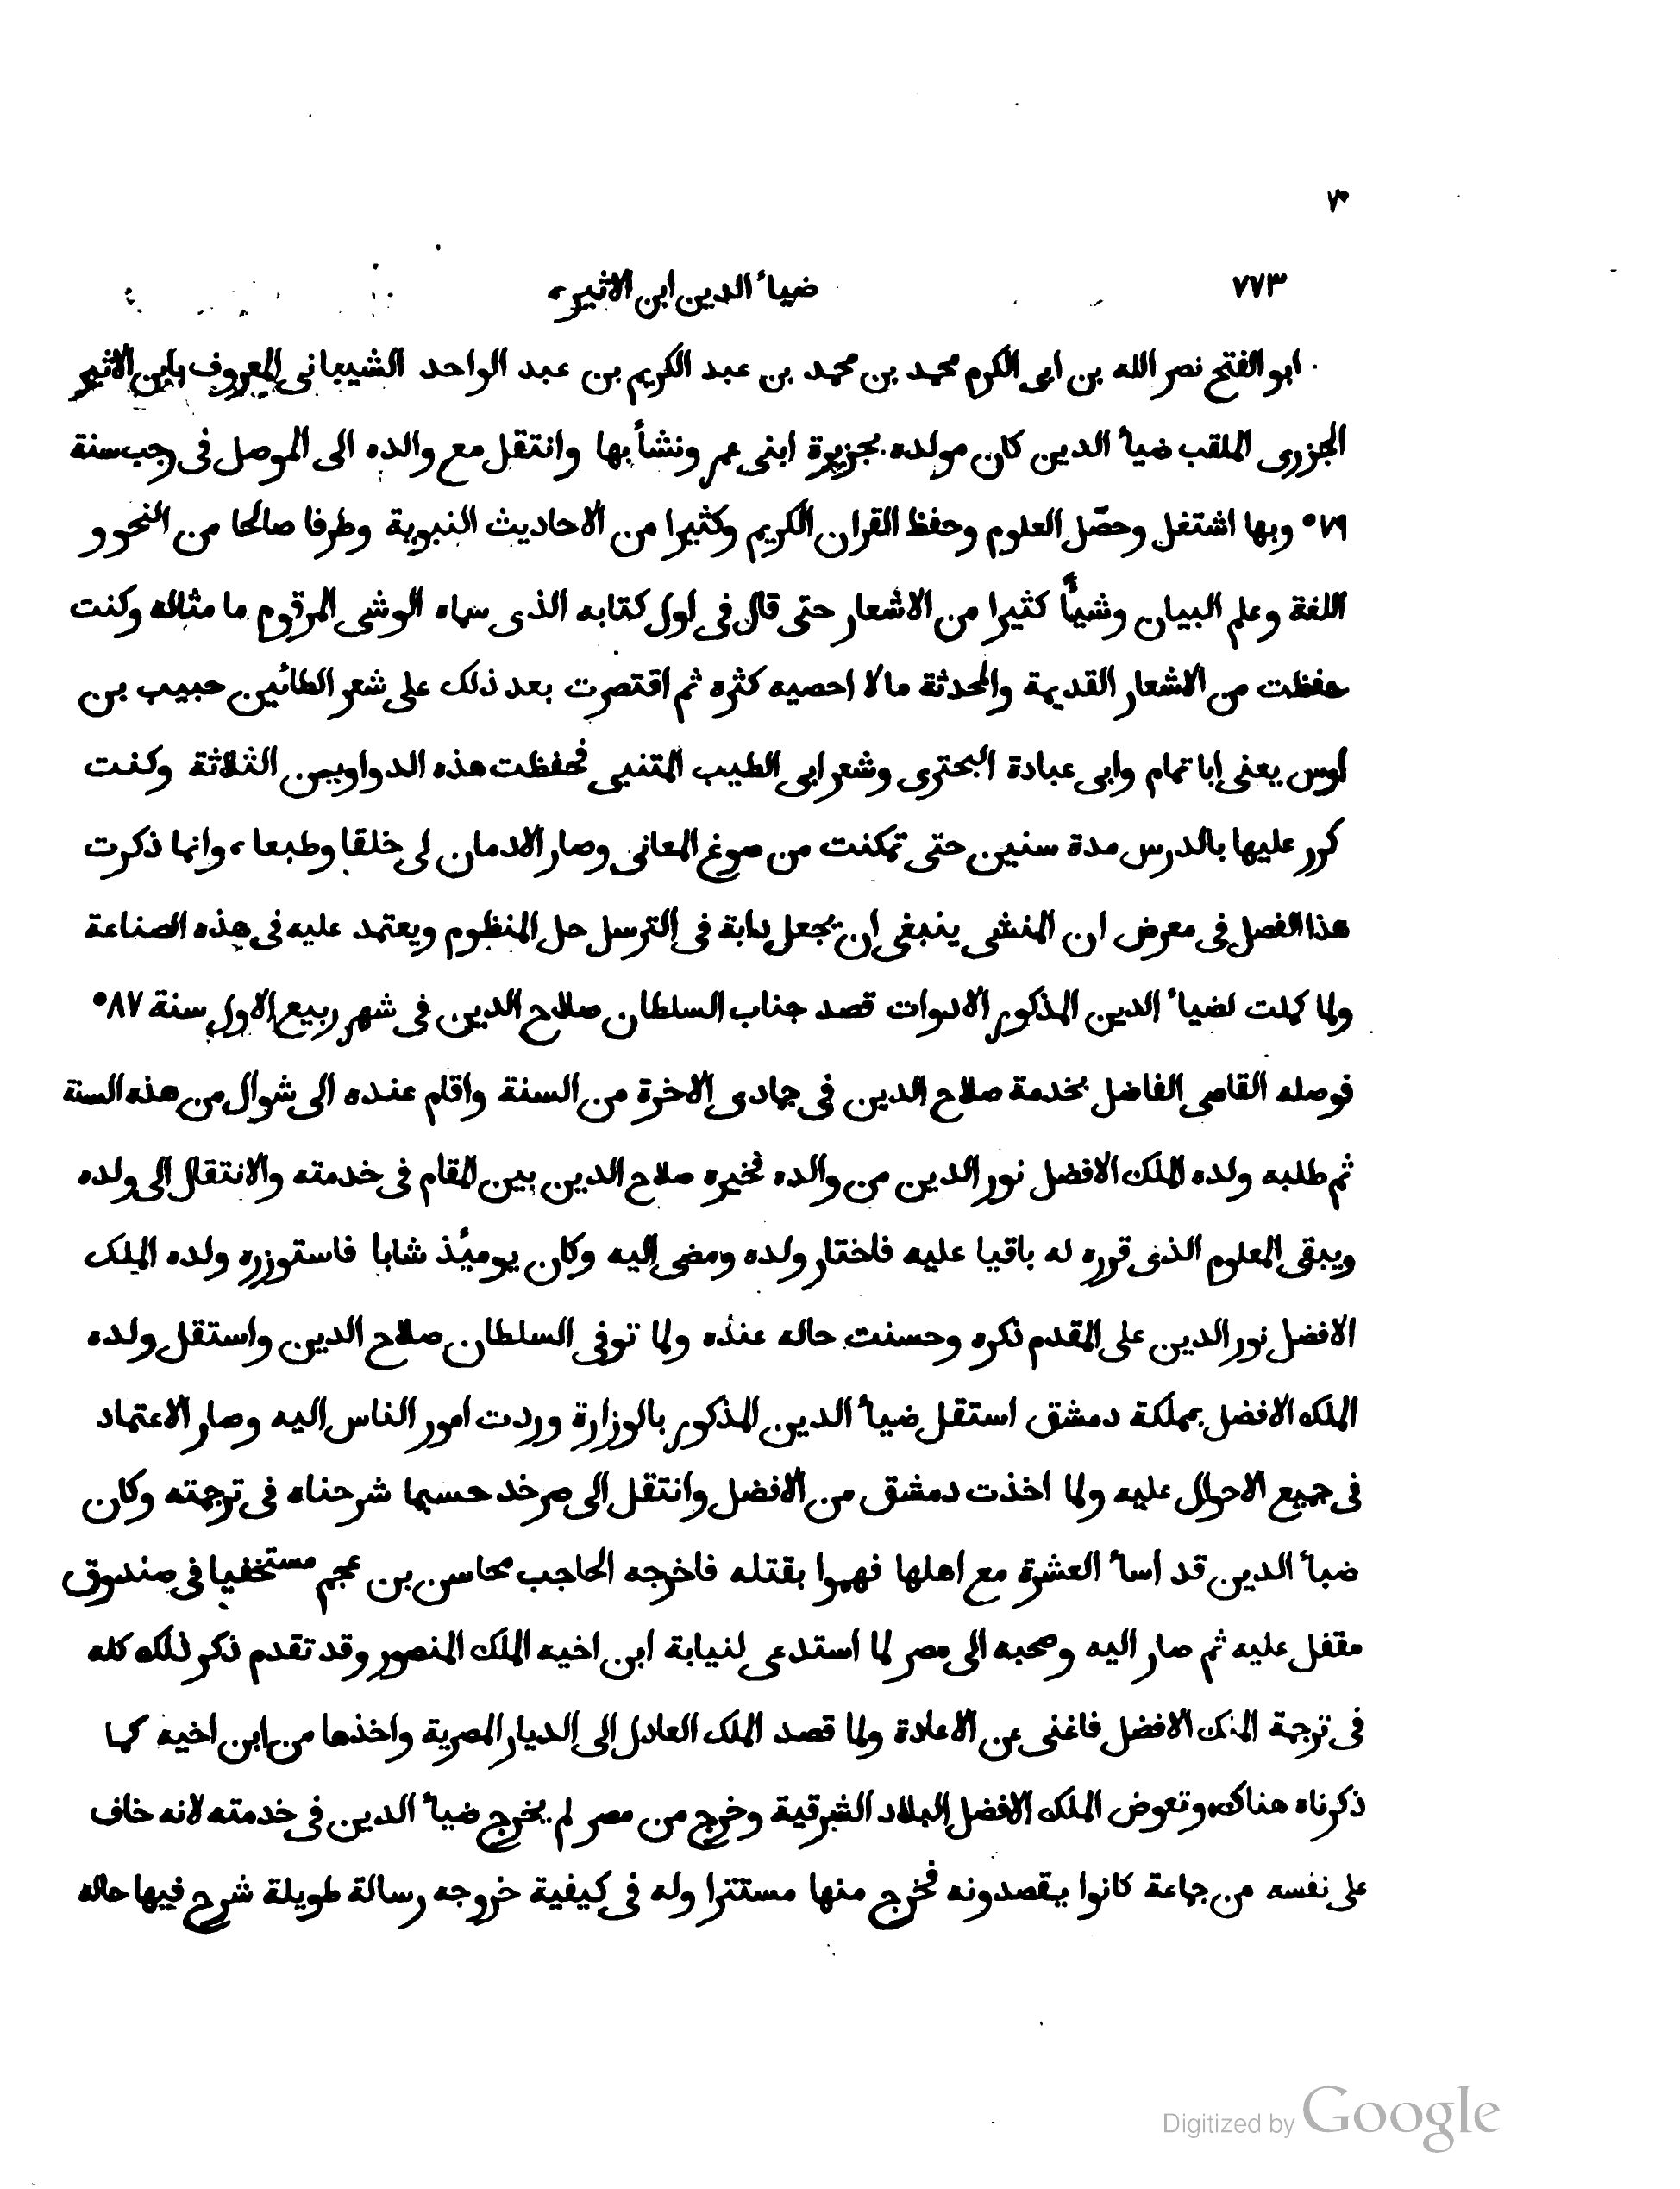 ٧٠
٧٧٣ ضياء الدين ابن الاثير،
ابو الفتح نصر الله بن ابى الكرم محمد بن محمد بن عبد الكريم بن عبد الواحد الشيبانى المعروف بابن الاثير
الجزرى الملقب ضياء الدين كان مولده بجزيرة ابنى عمر ونشأ بها وانتقل مع والده الى الموصل فى رجب سنة
٥٧٩ وبها اشتغل وحصّل العلوم وحفظ القران الكريم وكثيرا من الاحاديث النبوية وطرفا صالحا من النحو و
اللغة وعلم البيان وشيأً كثيرا من الاشعار حتى قال فى اول كتابه الذى سماه الوشى المرقوم ما مثاله وكنت
حفظت من الاشعار القديمة والمحدثة مالا احصيه كثره ثم اقتصرت بعد ذلك على شعر الطائين حبيب بن
اوس يعنى ابا تمام وابى عبادة البحترى وشعر ابى الطيب المتنبى فحفظت هذه الدواوين الثلاثة وكنت
كرر عليها بالدرس مدة سنين حتى تمكنت من صوغ المعانى وصار الادمان لى خلقا وطبعا، وانما ذكرت
هذا الفصل فى معرض ان المنشى ينبغى ان يجعل دابة فى الترسل حل المنظوم ويعتمد عليه فى هذه الصناعة
ولما كملت لضياء الدين المذكور الادوات قصد جناب السلطان صلاح الدين فى شهر ربيع الاول سنة ٥٨٧
فوصله القاضى الفاضل بخدمة صلاح الدين فى جمادى الاخرة من السنة واقام عنده الى شوال من هذه السنة
ثم طلبه ولده الملك الافضل نور الدين من والده فخيره صلاح الدين بين المقام فى خدمته والانتقال الى ولده
ويبقى المعلوم الذى قرره له باقيا عليه فاختار ولده ومضى اليه وكان يوميًذ شابا فاستوزره ولده الملك
الافضل نور الدين على المقدم ذكره وحسنت حاله عنده ولما توفى السلطان صلاح الدين واستقل ولده
الملك الافضل بمملكة دمشق استقل ضياء الدين المذكور بالوزارة وردت امور الناس اليه وصار الاعتماد
فى جميع الاحوال عليه ولما اخذت دمشق من الافضل وانتقل الى صرخد حسبما شرحناه فى ترجمته وكان
ضياء الدين قد اساء العشرة مع اهلها فهموا بقتله فاخرجه الحاجب محاسن بن عجم مستخفيا فى صندوق
مقفل عليه ثم صار اليه وصحبه الى مصر لما استدعى لنيابة ابن اخيه الملك المنصور وقد تقدم ذكر ذلك كله
فى ترجمة الملك الافضل فاغنى عن الاعادة ولما قصد الملك العادل الى الديار المصرية واخذها من ابن اخيه كما
ذكرناه هناك، وتعوض الملك الافضل البلاد الشرقية وخرج من مصر لم يخرج ضياء الدين فى خدمته لانه خاف
على نفسه من جماعة كانوا يقصدونه فخرج منها مستترا وله فى كيفية خروجه رسالة طويلة شرح فيها حاله
Digitized by Google